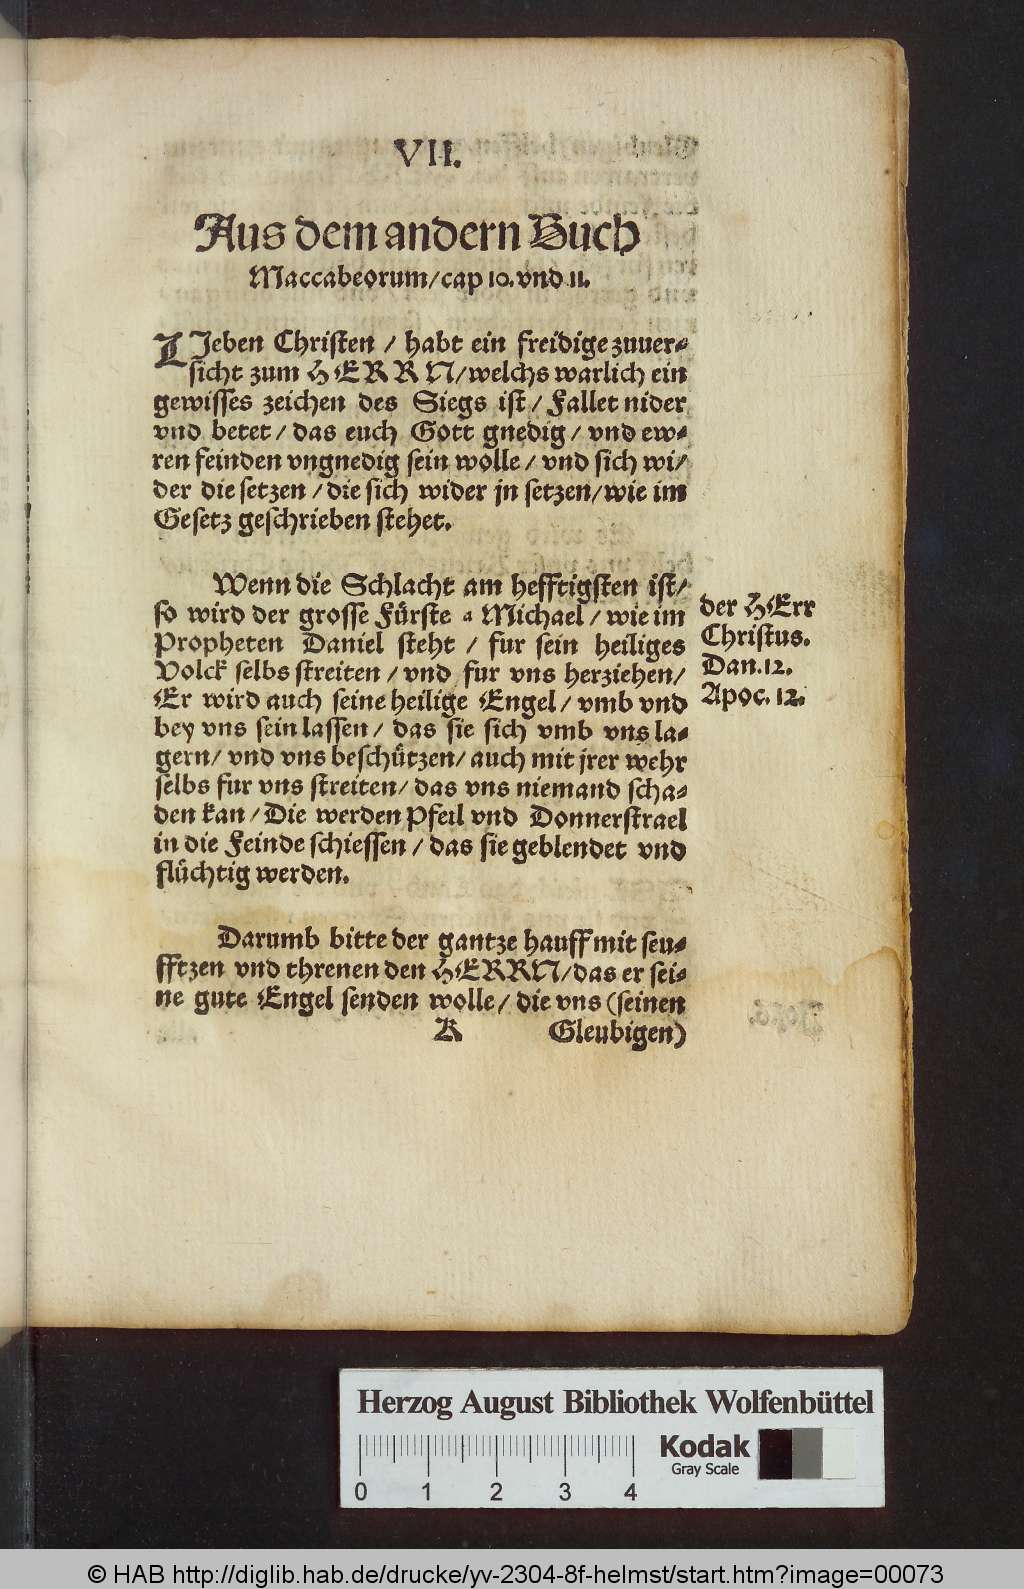 VII.
Aus dem andern Buch
Maccabeorum/cap 10. vnd 11.
LJeben Christen / habt ein freidige zuuer-
sicht zum HERRN/welchs warlich ein
gewisses zeichen des Siegs ist / Fallet nider
vnd betet / das euch Gott gnedig / vnd ew-
ren feinden vngnedig sein wolle / vnd sich wi/
der die setzen / die sich wider jn setzen/wie im
Gesetz geschrieben stehet.
Wenn die Schlacht am hefftigsten ist/
so wird der grosse Fürste a Michael / wie im
Propheten Daniel steht / fur sein heiliges
Volck selbs streiten / vnd fur vns herziehen/
Er wird auch seine heilige Engel / vmb vnd
bey vns sein lassen / das sie sich vmb vns la-
gern/ vnd vns beschützen/ auch mit jrer wehr
selbs fur vns streiten/ das vns niemand scha-
den kan / Die werden Pfeil vnd Donnerstrael
in die Feinde schiessen / das sie geblendet vnd
flüchtig werden.
der HErr
Christus.
Dan. 12.
Apoc. 12.
Darumb bitte der gantze hauff mit seu-
fftzen vnd threnen den HERRN/das er sei-
ne gute Engel senden wolle / die vns (seinen
K Gleubigen)
Herzog August Bibliothek Wolfenbüttel
Kodak
Gray Scale
0 1 2 3 4
© HAB http://diglib.hab.de/drucke/yv-2304-8f-helmst/start.htm?image=00073